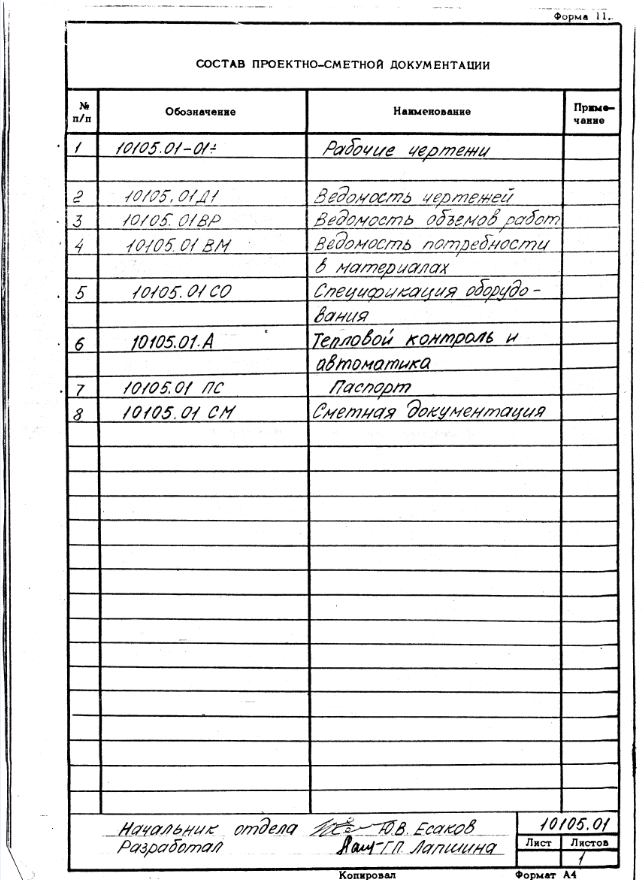 Форма 11.
СОСТАВ ПРОЕКТНО-СМЕТНОЙ ДОКУМЕНТАЦИИ
№ п/п Обозначение Наименование Приме-чание
1 10105.01-01÷ Рабочие чертежи
2 10105.01Д1 Ведомость чертежей
3 10105.01ВР Ведомость объемов работ
4 10105.01 ВМ Ведомость потребности
в материалах
5 10105.01 СО Спецификация оборудо-
вания
6 10105.01.А Тепловой контроль и
автоматика
7 10105.01 ПС Паспорт
8 10105.01 СМ Сметная документация
Начальник отдела Ю.В. Есаков 10105.01
Разработал Г.П. Лапшина Лист Листов
1
Копировал Формат А4